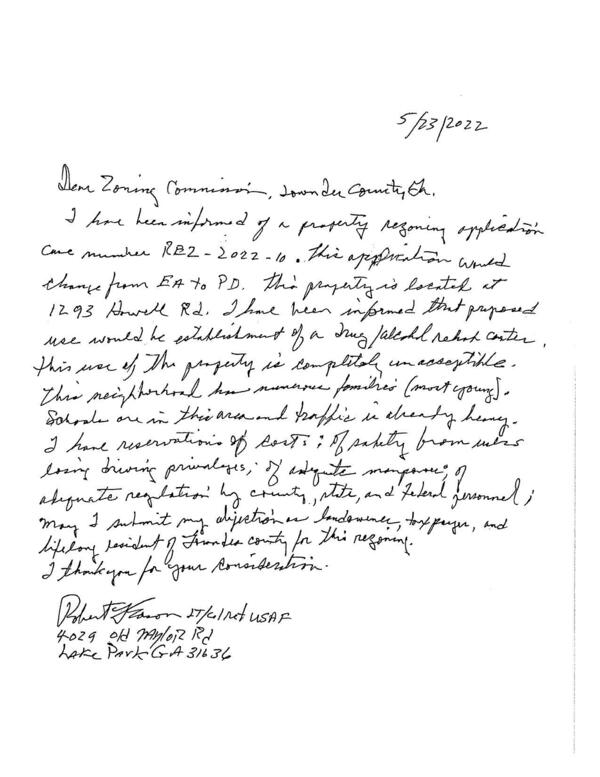 5/23/2022
Dear Zoning Commission, Lowndes County, Ga.
I have been informed of a property rezoning application
case number REZ-2022-10. This application would
change from EA to P.D. This property is located at
1293 Howell Rd. I have been informed that proposed
use would be establishment of a drug/alcohol rehab center.
This use of the property is completely unacceptible.
This neighborhood has numerous families (most young).
Schools are in this area and traffic is already heavy.
I have reservations of costs; of safety from users
losing driving privaleges; of adequate manpower; of
adequate regulation by county, state, and Federal personnel;
May I submit my objection as landowner, taxpayer, and
lifelong resident of Lowndes county for this rezoning.
I thank you for your consideration.
Robert LT/Col Ret USAF
4029 Old Naylor Rd
Lake Park GA 31636